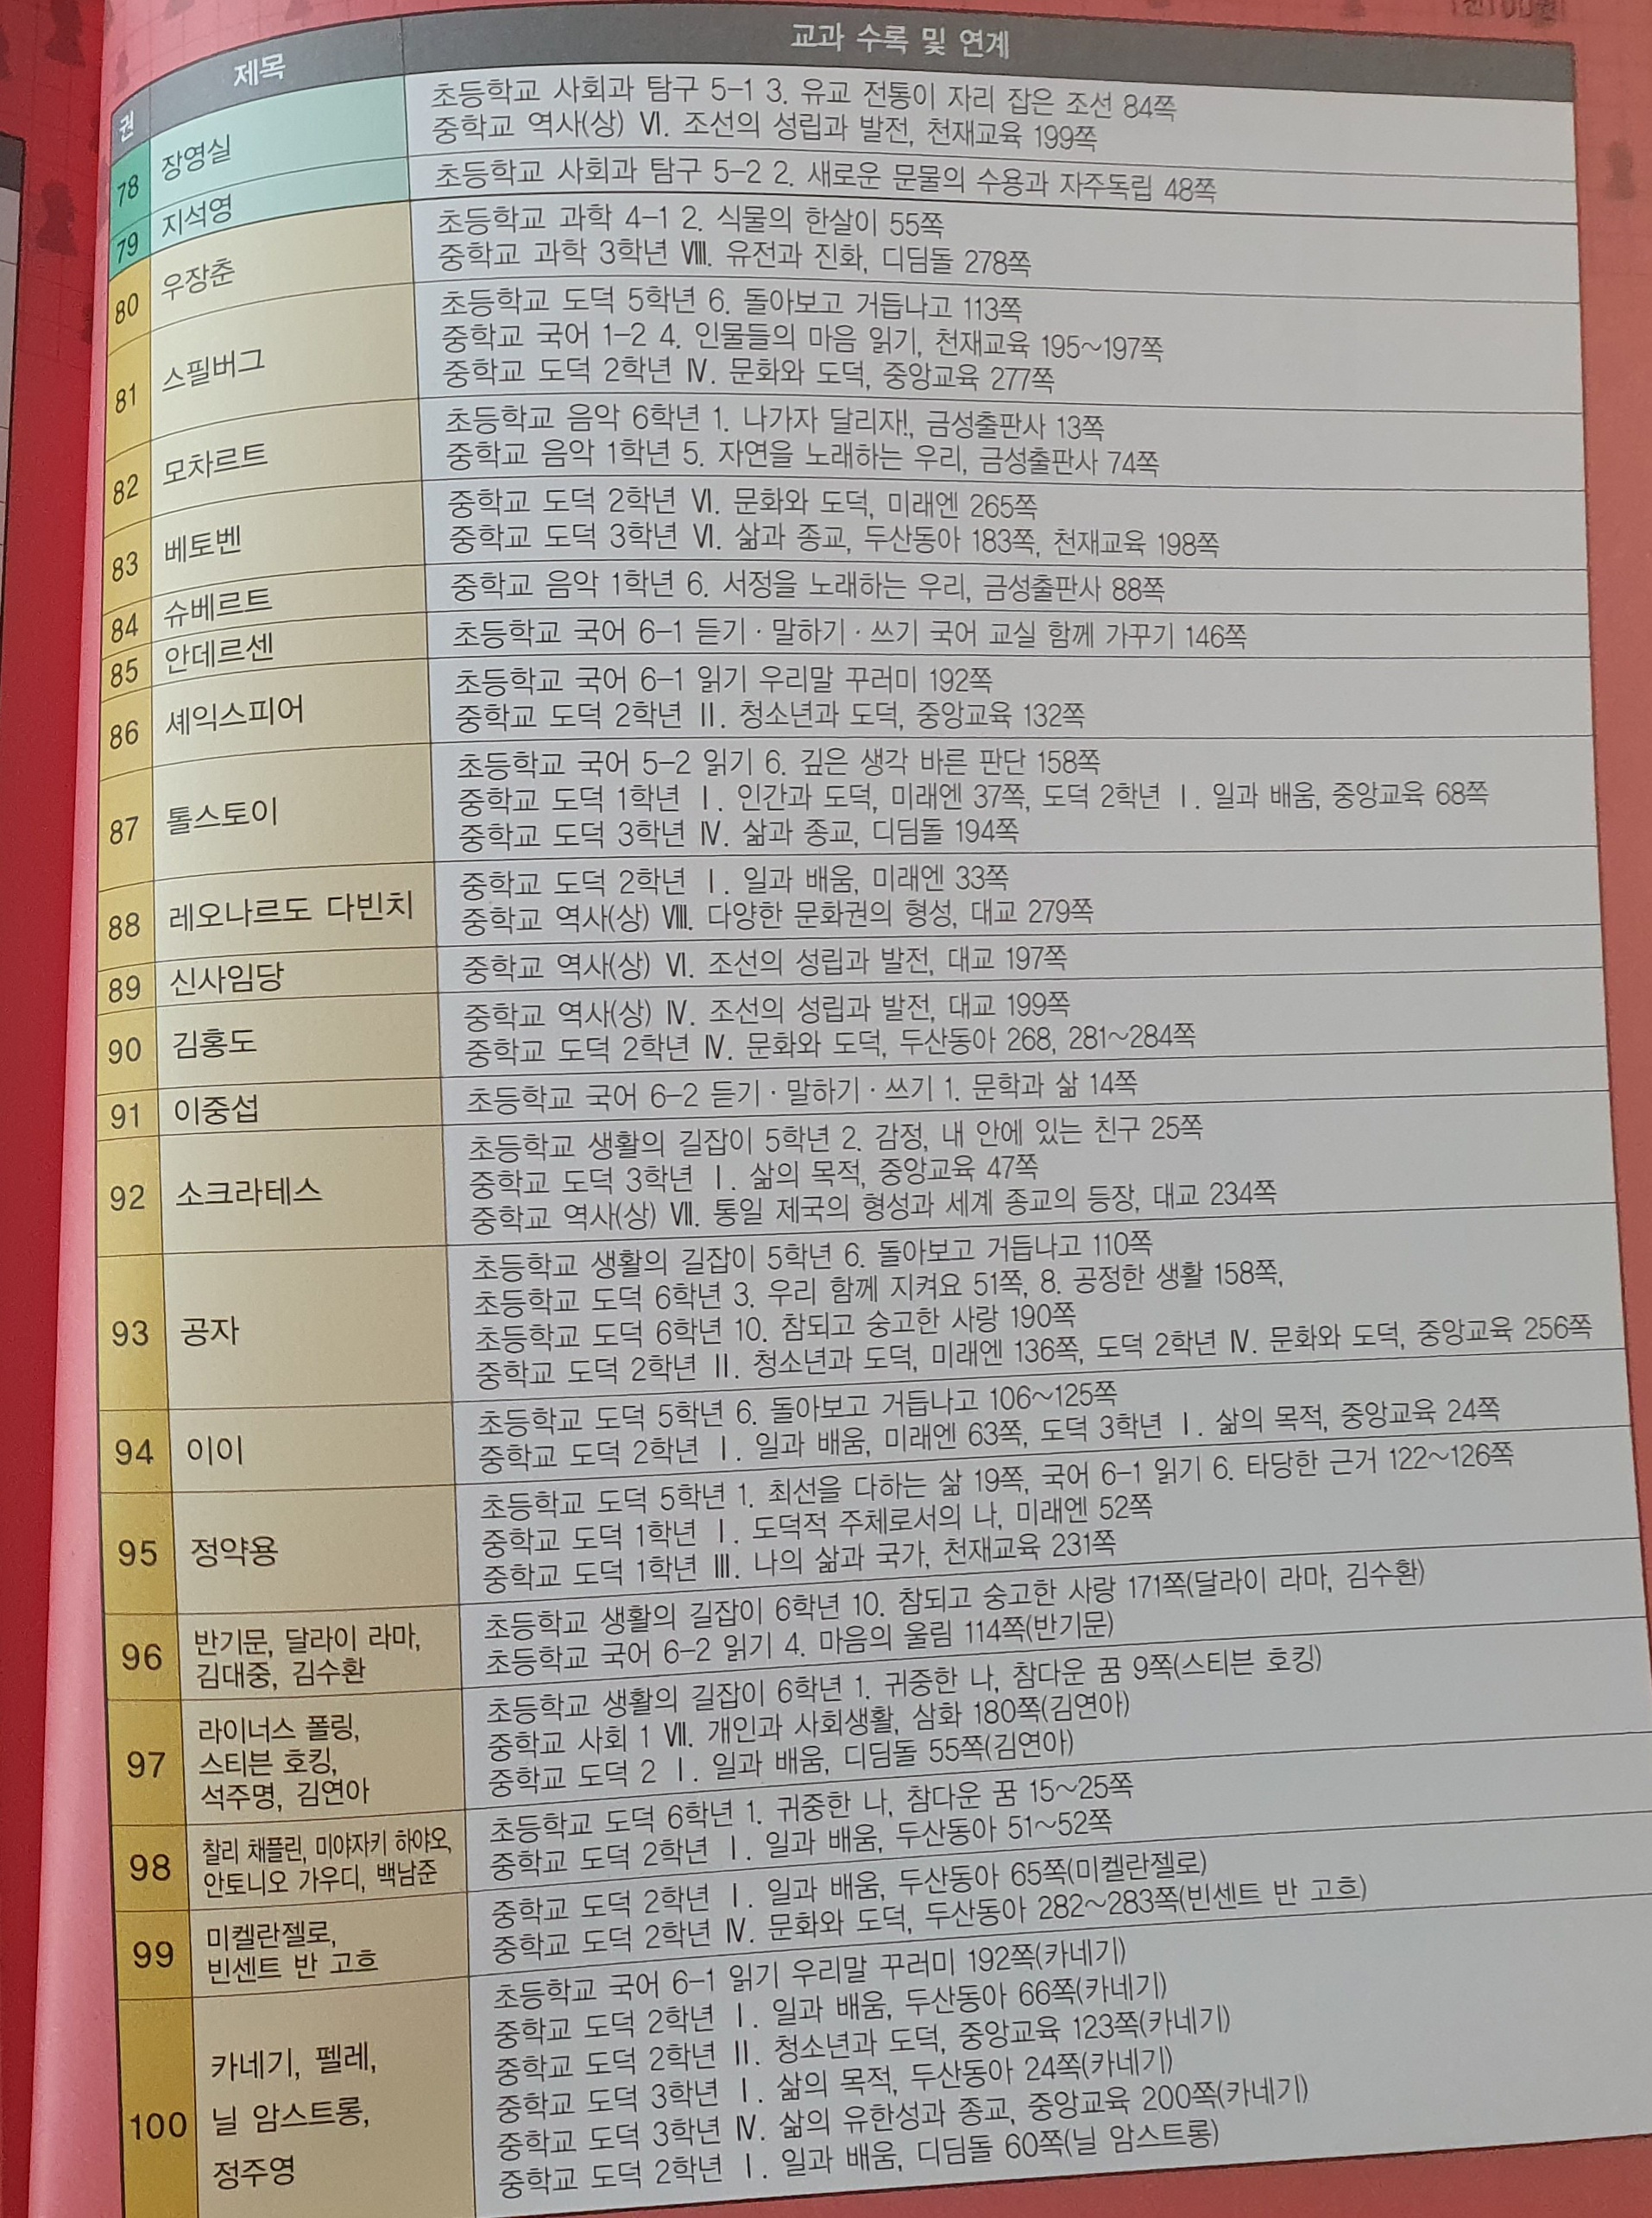 권 제목 교과 수록 및 연계
78 장영실
초등학교 사회과 탐구 5-1 3. 유교 전통이 자리 잡은 조선 84쪽
중학교 역사(상) Ⅵ. 조선의 성립과 발전, 천재교육 199쪽
79 지석영
초등학교 사회과 탐구 5-2 2. 새로운 문물의 수용과 자주독립 48쪽
80 우장춘
초등학교 과학 4-1 2. 식물의 한살이 55쪽
중학교 과학 3학년 Ⅷ. 유전과 진화, 디딤돌 278쪽
81 스필버그
초등학교 도덕 5학년 6. 돌아보고 거듭나고 113쪽
중학교 국어 1-2 4. 인물들의 마음 읽기, 천재교육 195~197쪽
중학교 도덕 2학년 Ⅳ. 문화와 도덕, 중앙교육 277쪽
82 모차르트
초등학교 음악 6학년 1. 나가자 달리자!, 금성출판사 13쪽
중학교 음악 1학년 5. 자연을 노래하는 우리, 금성출판사 74쪽
83 베토벤
중학교 도덕 2학년 Ⅵ. 문화와 도덕, 미래엔 265쪽
중학교 도덕 3학년 Ⅵ. 삶과 종교, 두산동아 183쪽, 천재교육 198쪽
84 슈베르트
중학교 음악 1학년 6. 서정을 노래하는 우리, 금성출판사 88쪽
85 안데르센
초등학교 국어 6-1 듣기·말하기·쓰기 국어 교실 함께 가꾸기 146쪽
86 셰익스피어
초등학교 국어 6-1 읽기 우리말 꾸러미 192쪽
중학교 도덕 2학년 Ⅱ. 청소년과 도덕, 중앙교육 132쪽
87 톨스토이
초등학교 국어 5-2 읽기 6. 깊은 생각 바른 판단 158쪽
중학교 도덕 1학년 Ⅰ. 인간과 도덕, 미래엔 37쪽, 도덕 2학년 Ⅰ. 일과 배움, 중앙교육 68쪽
중학교 도덕 3학년 Ⅳ. 삶과 종교, 디딤돌 194쪽
88 레오나르도 다빈치
중학교 도덕 2학년 Ⅰ. 일과 배움, 미래엔 33쪽
중학교 역사(상) Ⅷ. 다양한 문화권의 형성, 대교 279쪽
89 신사임당
중학교 역사(상) Ⅵ. 조선의 성립과 발전, 대교 197쪽
90 김홍도
중학교 역사(상) Ⅳ. 조선의 성립과 발전, 대교 199쪽
중학교 도덕 2학년 Ⅳ. 문화와 도덕, 두산동아 268, 281~284쪽
91 이중섭
초등학교 국어 6-2 듣기·말하기·쓰기 1. 문학과 삶 14쪽
92 소크라테스
초등학교 생활의 길잡이 5학년 2. 감정, 내 안에 있는 친구 25쪽
중학교 도덕 3학년 Ⅰ. 삶의 목적, 중앙교육 47쪽
중학교 역사(상) Ⅶ. 통일 제국의 형성과 세계 종교의 등장, 대교 234쪽
93 공자
초등학교 생활의 길잡이 5학년 6. 돌아보고 거듭나고 110쪽
초등학교 도덕 6학년 3. 우리 함께 지켜요 51쪽, 8. 공정한 생활 158쪽,
초등학교 도덕 6학년 10. 참되고 숭고한 사랑 190쪽
중학교 도덕 2학년 Ⅱ. 청소년과 도덕, 미래엔 136쪽, 도덕 2학년 Ⅳ. 문화와 도덕, 중앙교육 256쪽
94 이이
초등학교 도덕 5학년 6. 돌아보고 거듭나고 106~125쪽
중학교 도덕 2학년 Ⅰ. 일과 배움, 미래엔 63쪽, 도덕 3학년 Ⅰ. 삶의 목적, 중앙교육 24쪽
95 정약용
초등학교 도덕 5학년 1. 최선을 다하는 삶 19쪽, 국어 6-1 읽기 6. 타당한 근거 122~126쪽
중학교 도덕 1학년 Ⅰ. 도덕적 주체로서의 나, 미래엔 52쪽
중학교 도덕 1학년 Ⅲ. 나의 삶과 국가, 천재교육 231쪽
96 반기문, 달라이 라마,
김대중, 김수환
초등학교 생활의 길잡이 6학년 10. 참되고 숭고한 사랑 171쪽(달라이 라마, 김수환)
초등학교 국어 6-2 읽기 4. 마음의 울림 114쪽(반기문)
97 라이너스 폴링,
스티븐 호킹,
석주명, 김연아
초등학교 생활의 길잡이 6학년 1. 귀중한 나, 참다운 꿈 9쪽(스티븐 호킹)
중학교 사회 1 Ⅶ. 개인과 사회생활, 삼화 180쪽(김연아)
중학교 도덕 2 Ⅰ. 일과 배움, 디딤돌 55쪽(김연아)
98 찰리 채플린, 미야자키 하야오,
안토니오 가우디, 백남준
초등학교 도덕 6학년 1. 귀중한 나, 참다운 꿈 15~25쪽
중학교 도덕 2학년 Ⅰ. 일과 배움, 두산동아 51~52쪽
99 미켈란젤로,
빈센트 반 고흐
중학교 도덕 2학년 Ⅰ. 일과 배움, 두산동아 65쪽(미켈란젤로)
중학교 도덕 2학년 Ⅳ. 문화와 도덕, 두산동아 282~283쪽(빈센트 반 고흐)
100 카네기, 펠레,
닐 암스트롱,
정주영
초등학교 국어 6-1 읽기 우리말 꾸러미 192쪽(카네기)
중학교 도덕 2학년 Ⅰ. 일과 배움, 두산동아 66쪽(카네기)
중학교 도덕 2학년 Ⅱ. 청소년과 도덕, 중앙교육 123쪽(카네기)
중학교 도덕 3학년 Ⅰ. 삶의 목적, 두산동아 24쪽(카네기)
중학교 도덕 3학년 Ⅳ. 삶의 유한성과 종교, 중앙교육 200쪽(카네기)
중학교 도덕 2학년 Ⅰ. 일과 배움, 디딤돌 60쪽(닐 암스트롱)